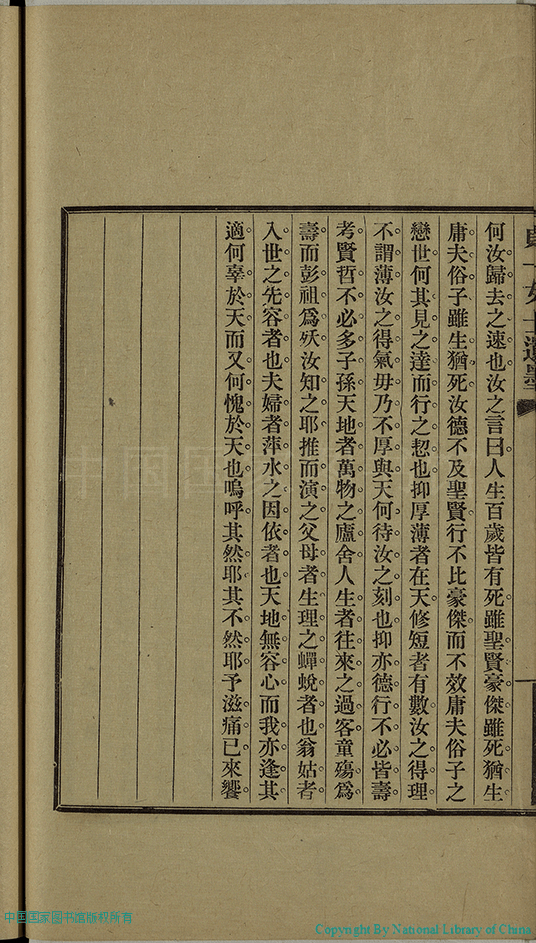 女士遺墨
何汝歸去之速也汝之言曰人生百歲皆有死雖聖賢豪傑雖死猶生
庸夫俗子雖生猶死汝德不及聖賢行不比豪傑而不效庸夫俗子之
戀世何其見之達而行之恝也抑厚薄者在天修短者有數汝之得理
不謂薄汝之得氣毋乃不厚與天何待汝之刻也抑亦德行不必皆壽
考賢哲不必多子孫天地者萬物之廬舍人生者往來之過客童殤為
壽而彭祖為殀汝知之耶推而演之父母者生理之蟬蛻者也翁姑者
入世之先容者也夫婦者萍水之因依者也天地無容心而我亦逢其
適何辜於天而又何愧於天也嗚呼其然耶其不然耶予滋痛已來饗
中国国家图书馆版权所有
Copyright By National Library of China